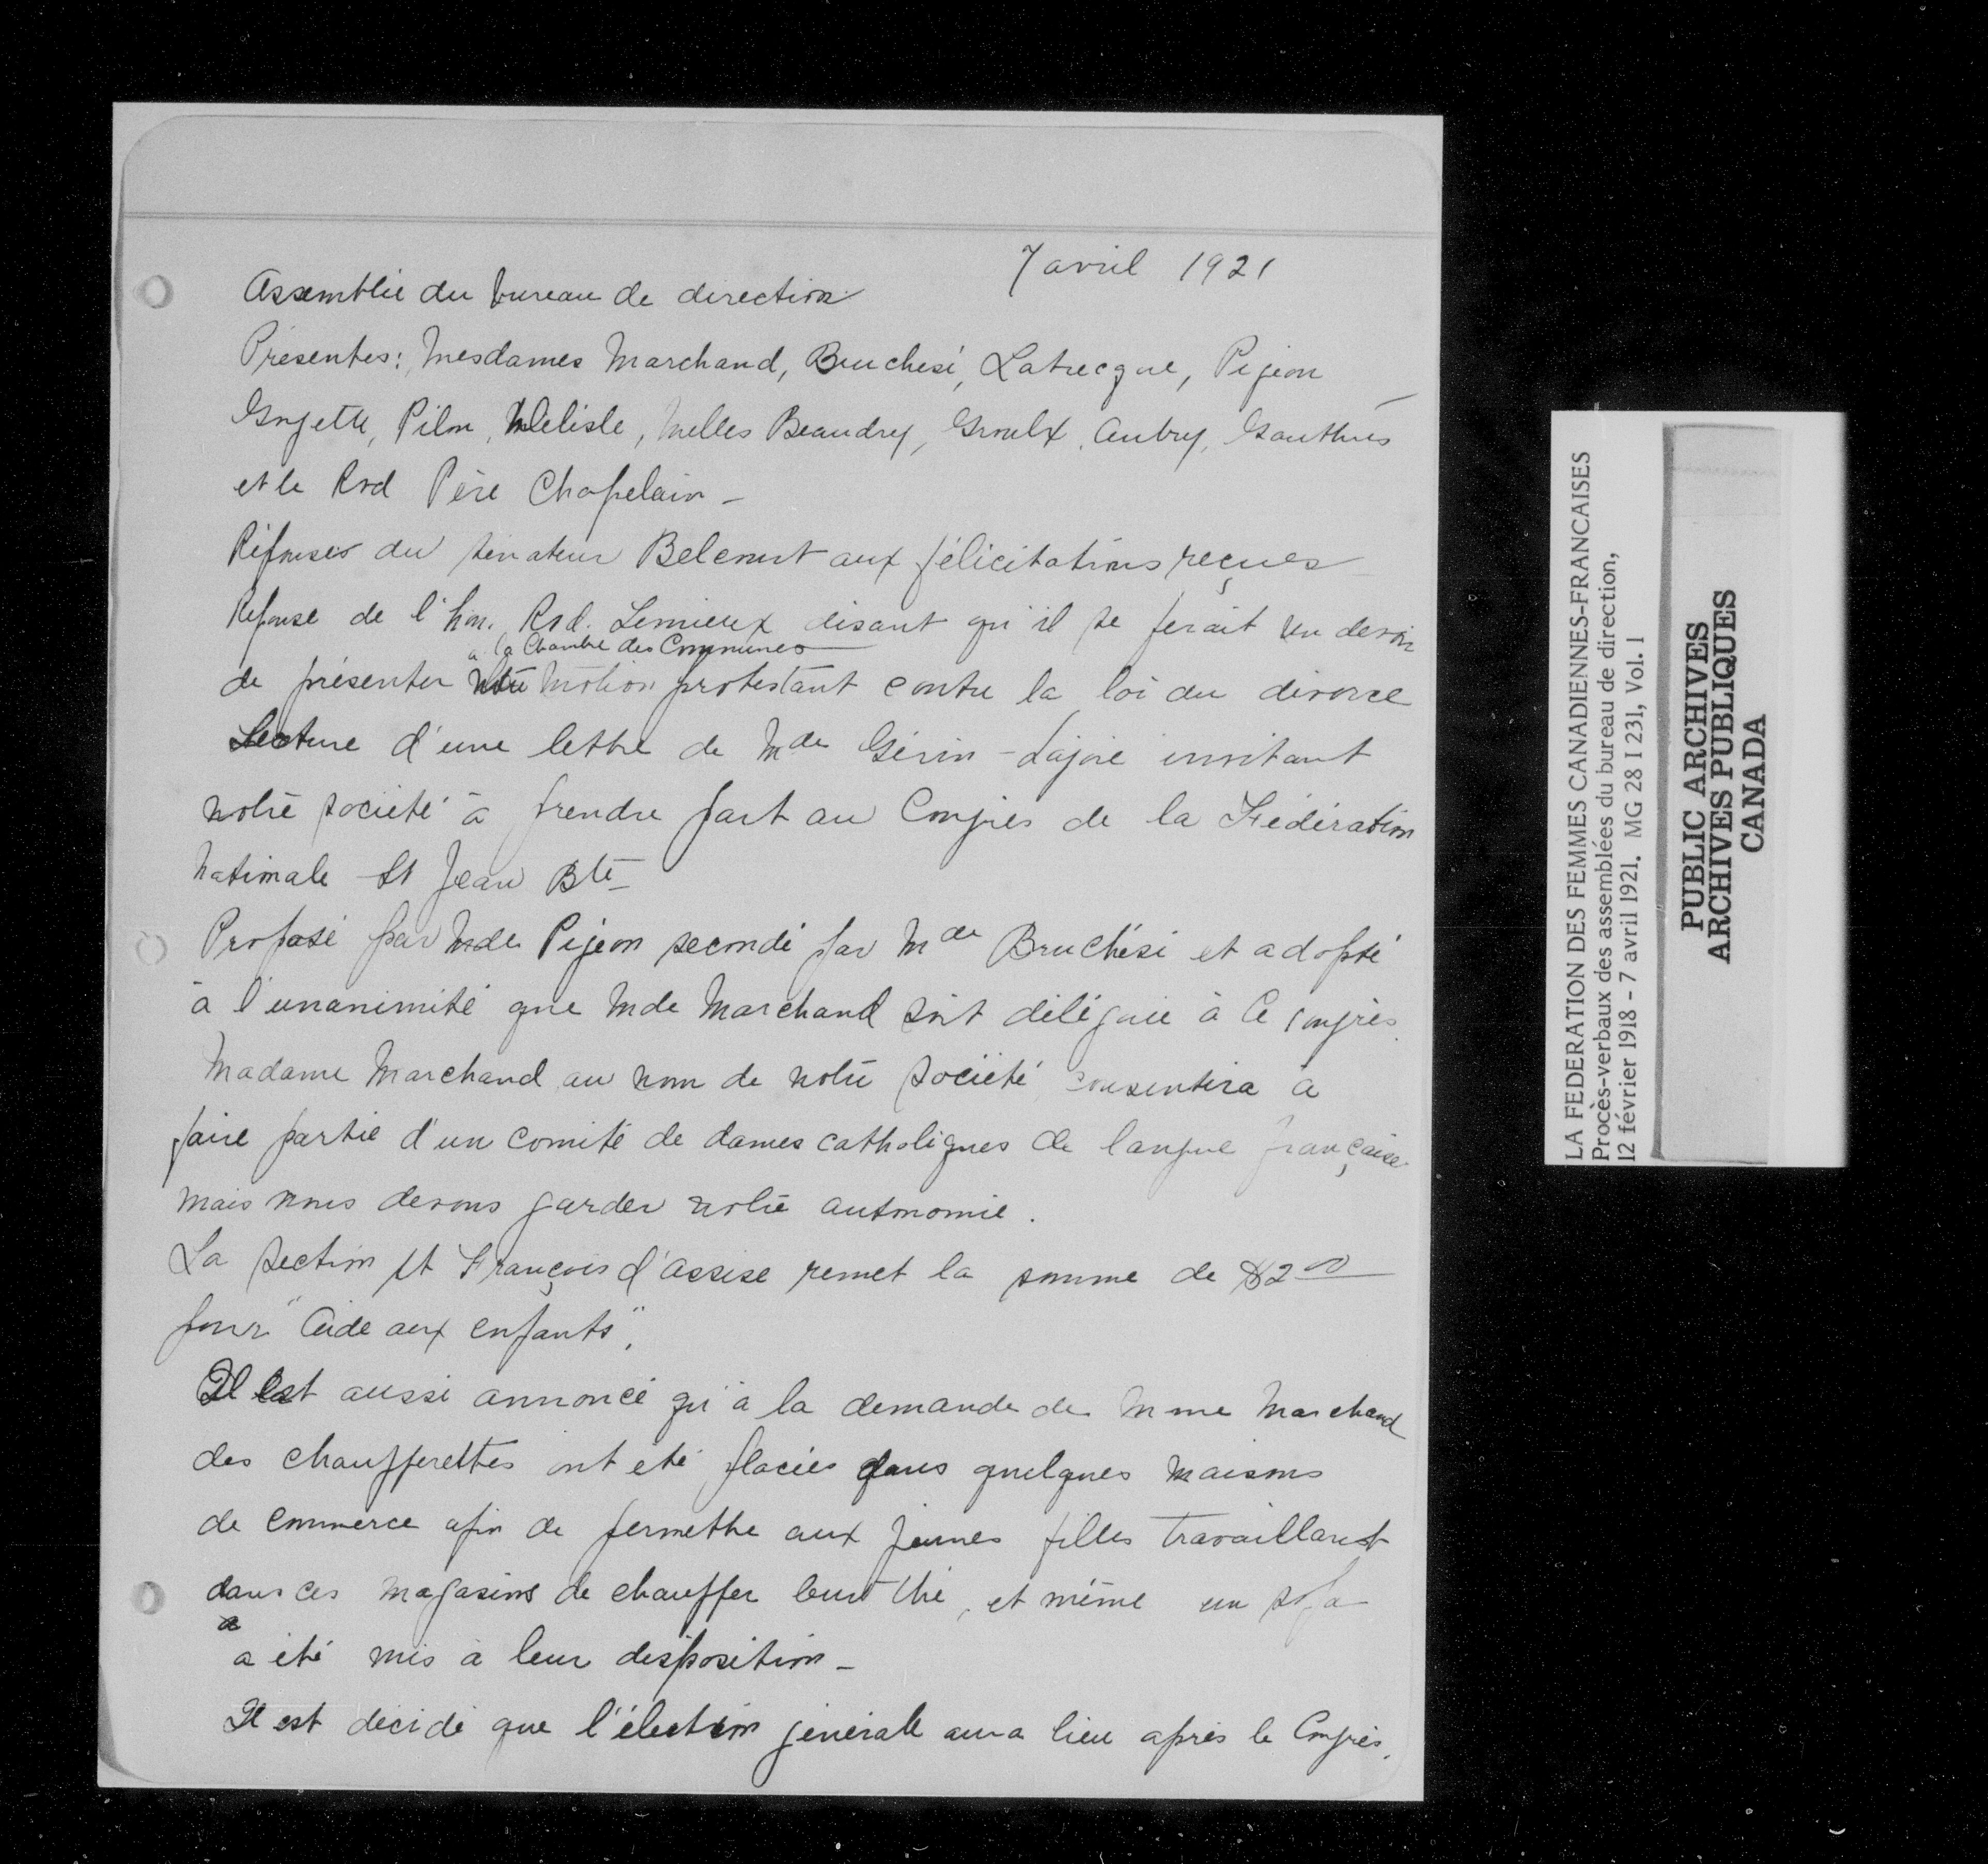 7 avril 1921
Assemblée du bureau de direction
Présentes: Mesdames Marchand, Bruchési, Latrecque, Pigeon
Goyette, Pilon, Delisle, Melles Beaudry, Groulx, Aubry, Gauthier
et le Rvd Père Chapelain -
Réponses du sénateur Belcourt aux félicitations reçues
Réponse de l'hon. Rod. Lemieux disant qu'il se ferait un devoir
à la Chambre des Communes
de présenter notre motion protestant contre la loi du divorce
Lecture d'une lettre de Mde Gérin-Lajoie invitant
notre société à prendre part au Congrès de la Fédération
Nationale St Jean Bte
Proposé par Mde Pigeon secondé par Mde Bruchési et adopté
à l'unanimité que Mde Marchand soit déléguée à ce congrès.
Madame Marchand au nom de notre société consentira à
faire partie d'un comité de dames catholiques de langue française
mais nous devons garder notre autonomie.
La section St François d'assise remet la somme de $2 00
pour "Aide aux enfants".
Il est aussi annoncé qu'à la demande de Mme Marchand
des chaufferettes ont été placées dans quelques maisons
de commerce afin de permettre aux jeunes filles travaillant
dans ces magasins de chauffer leur thé, et même un sofa
a
a été mis à leur disposition -
Il est décidé que l'élection générale aura lieu après le Congrès.
LA FEDERATION DES FEMMES CANADIENNES-FRANCAISES
Procès-verbaux des assemblées du bureau de direction,
12 février 1918 - 7 avril 1921. MG 28 I 231, Vol. 1
PUBLIC ARCHIVES
ARCHIVES PUBLIQUES
CANADA